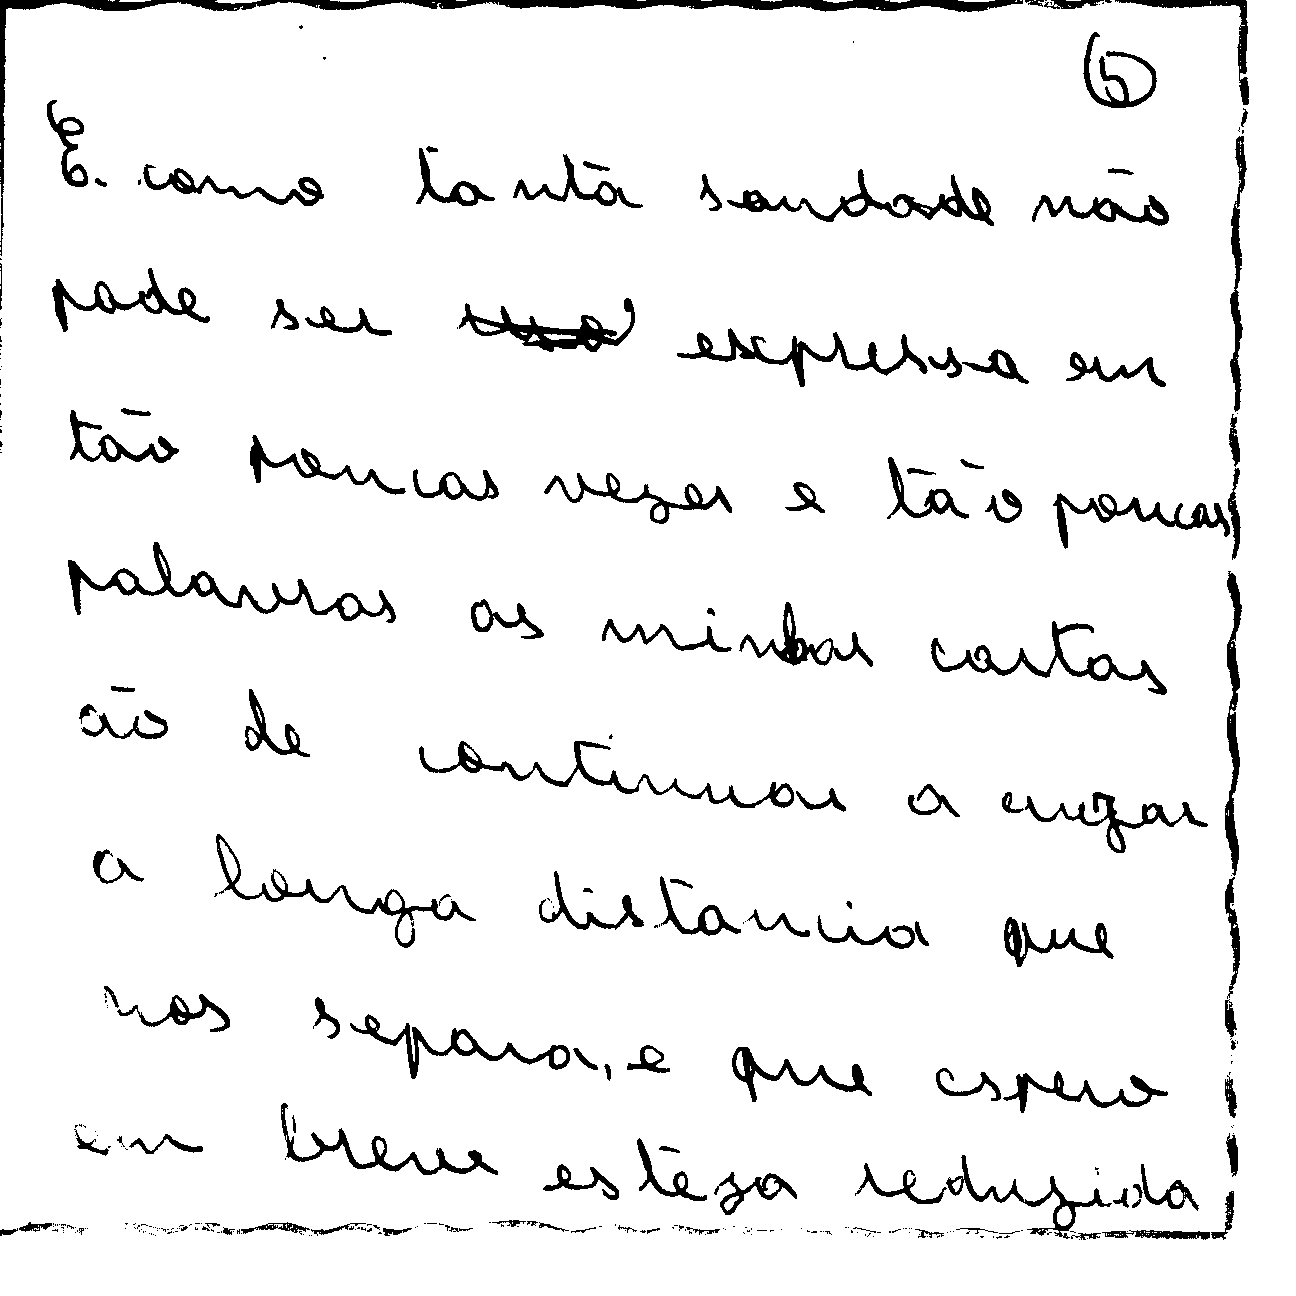 6
E. como tanta saudade não
pode ser expressa em
tão poucas vezes e tão poucas
palavras as minhas cartas
ão de continuar a cruzar
a longa distancia que
nos separa, e que espero
em breve esteza reduzida